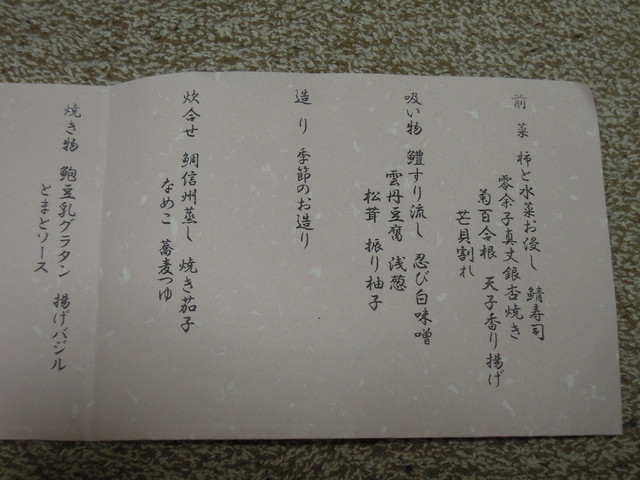 前菜 柿と水菜お浸し 鯖寿司
零余子真丈銀杏焼き
菊百合根 天子香り揚げ
芒貝割れ
吸い物 鱧すり流し 忍び白味噌
雲丹豆腐 浅葱
松茸 振り柚子
造り 季節のお造り
炊合せ 鯛信州蒸し 焼き茄子
なめこ 蕎麦つゆ
焼き物 鮑豆乳グラタン 揚げバジル
とまとソース